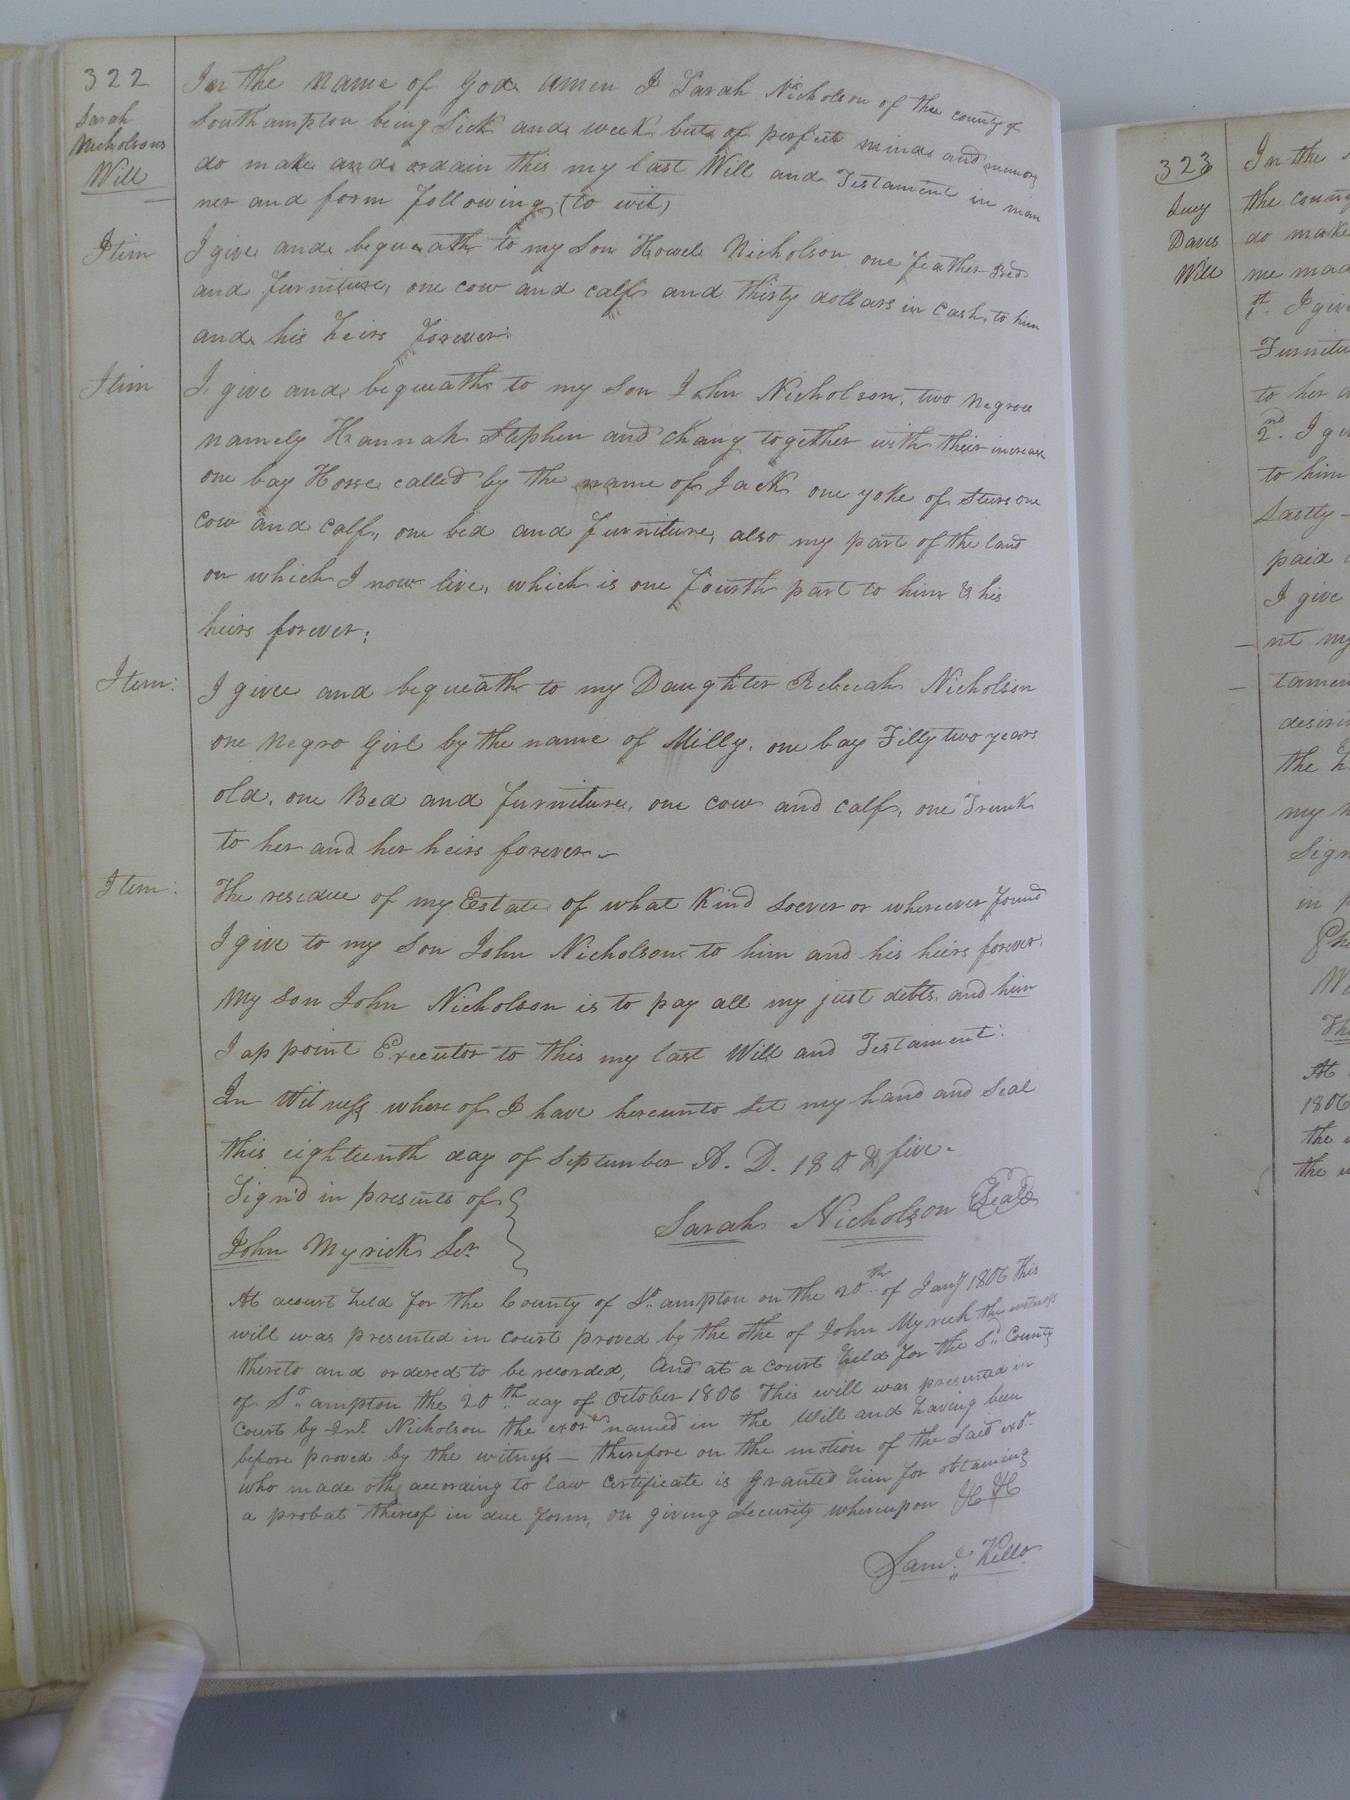 322
Sarah
Nicholsons
Will
In the name of God amen I Sarah Nicholson of the county of
Southampton being Sick and week but of perfect mind and memory
do make and ordain this my last Will and Testament in man
ner and form following (to wit)
Itim I give and bequeath to my Son Howel Nicholson one feather Bed
and furniture, one cow and calf and thirty dollars in Cash to him
and his heirs forever.
Itim I give and bequeath to my Son John Nicholson, two negroes
namely Hannah Stephen and Chany together with their increase
one bay Horse called by the name of Jack one yoke of Steers one
cow and calf, one bed and furniture, also my part of the land
on which I now live, which is one fourth part to him & his
heirs forever;
Item: I givee and bequeath to my Daughter Rebecah Nicholson
one negro Girl by the name of Milly. one bay Filly two years
old, one Bed and furniture, one cow and calf, one Trunk
to her and her heirs forever.
Item: The residue of my Estate of what Kind soever or wherever found
I give to my Son John Nicholson to him and his heirs forever.
My son John Nicholson is to pay all my just debts. and him
I appoint Executor to this my last Will and Testament:
In Witness where of I have hereunto Set my hand and Seal
this eighteenth day of September A. D. 180 & five.
Sign'd in presents of
John Myrick Ser
Sarah Nicholson Seal
At acourt held for the County of So ampton on the 20th of Jany 1806 This
will was presented in court proved by the othe of John Myrick the witness
thereto and ordered to be recorded, And at a court held for the Sd County
of So ampton the 20th day of October 1806 This will was presented in
Court by Jno Nicholson the exor named in the Will and having been
before proved by the witness — therefore on the motion of the Said exor
who made oth according to law certificate is granted him for obtaining
a probat thereof in due form, on giving Security whereupon &c &c
Saml Kello
323
Lucy
Daves
Will
In the
the county
do make
me mad
1st. I give
Furnitu
to her a
2nd. I gi
to him
Lastly —
paid
I give
nt my
tamen
desirin
the
my
Sign
in
At
1806
the
the